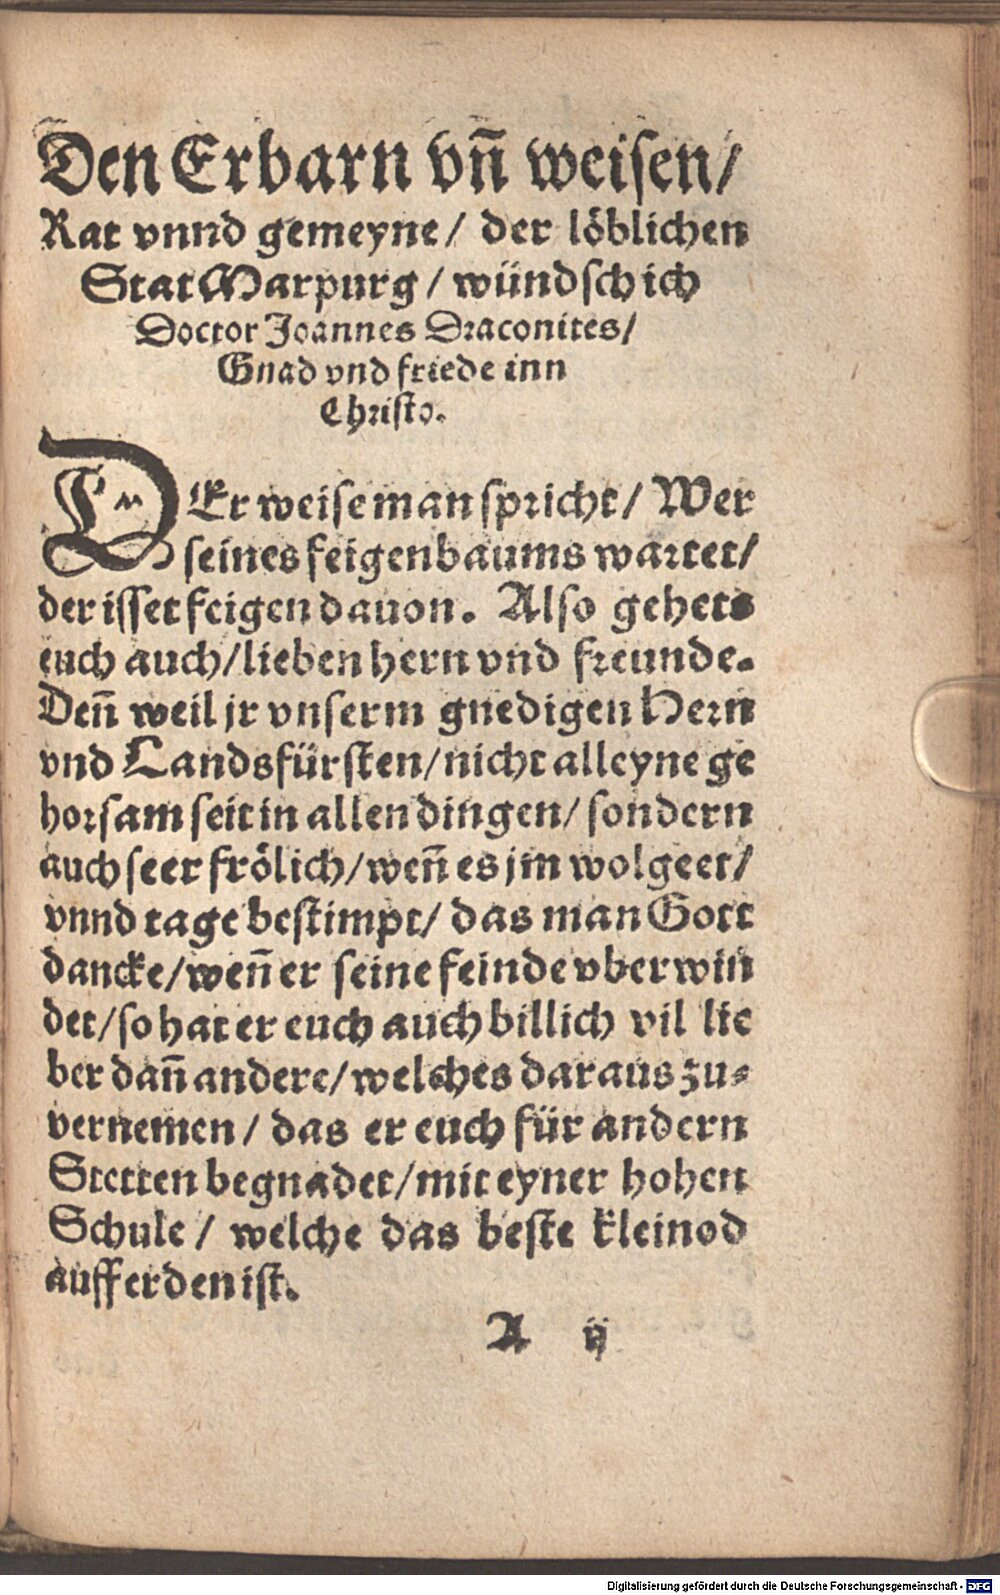 Den Erbarn vñ weisen/
Rat vnnd gemeyne/ der löblichen
Stat Marpurg/ wündsch ich
Doctor Joannes Draconites/
Gnad vnd friede inn
Christo.
DEr weise man spricht/ Wer
seines feigenbaums wartet/
der isset feigen dauon. Also gehets
euch auch/ lieben hern vnd freunde.
Deñ weil jr vnserm gnedigen Hern
vnd Landsfürsten/ nicht alleyne ge
horsam seit in allen dingen/ sondern
auch seer frölich/ weñ es jm wolgeet/
vnnd tage bestimpt/ das man Gott
dancke/ weñ er seine feinde vberwin
det/ so hat er euch auch billich vil lie
ber dañ andere/ welches daraus zu-
vernemen/ das er euch für andern
Stetten begnadet/ mit eyner hohen
Schule/ welche das beste kleinod
auff erden ist.
A ij
Digitalisierung gefördert durch die Deutsche Forschungsgemeinschaft - DFG